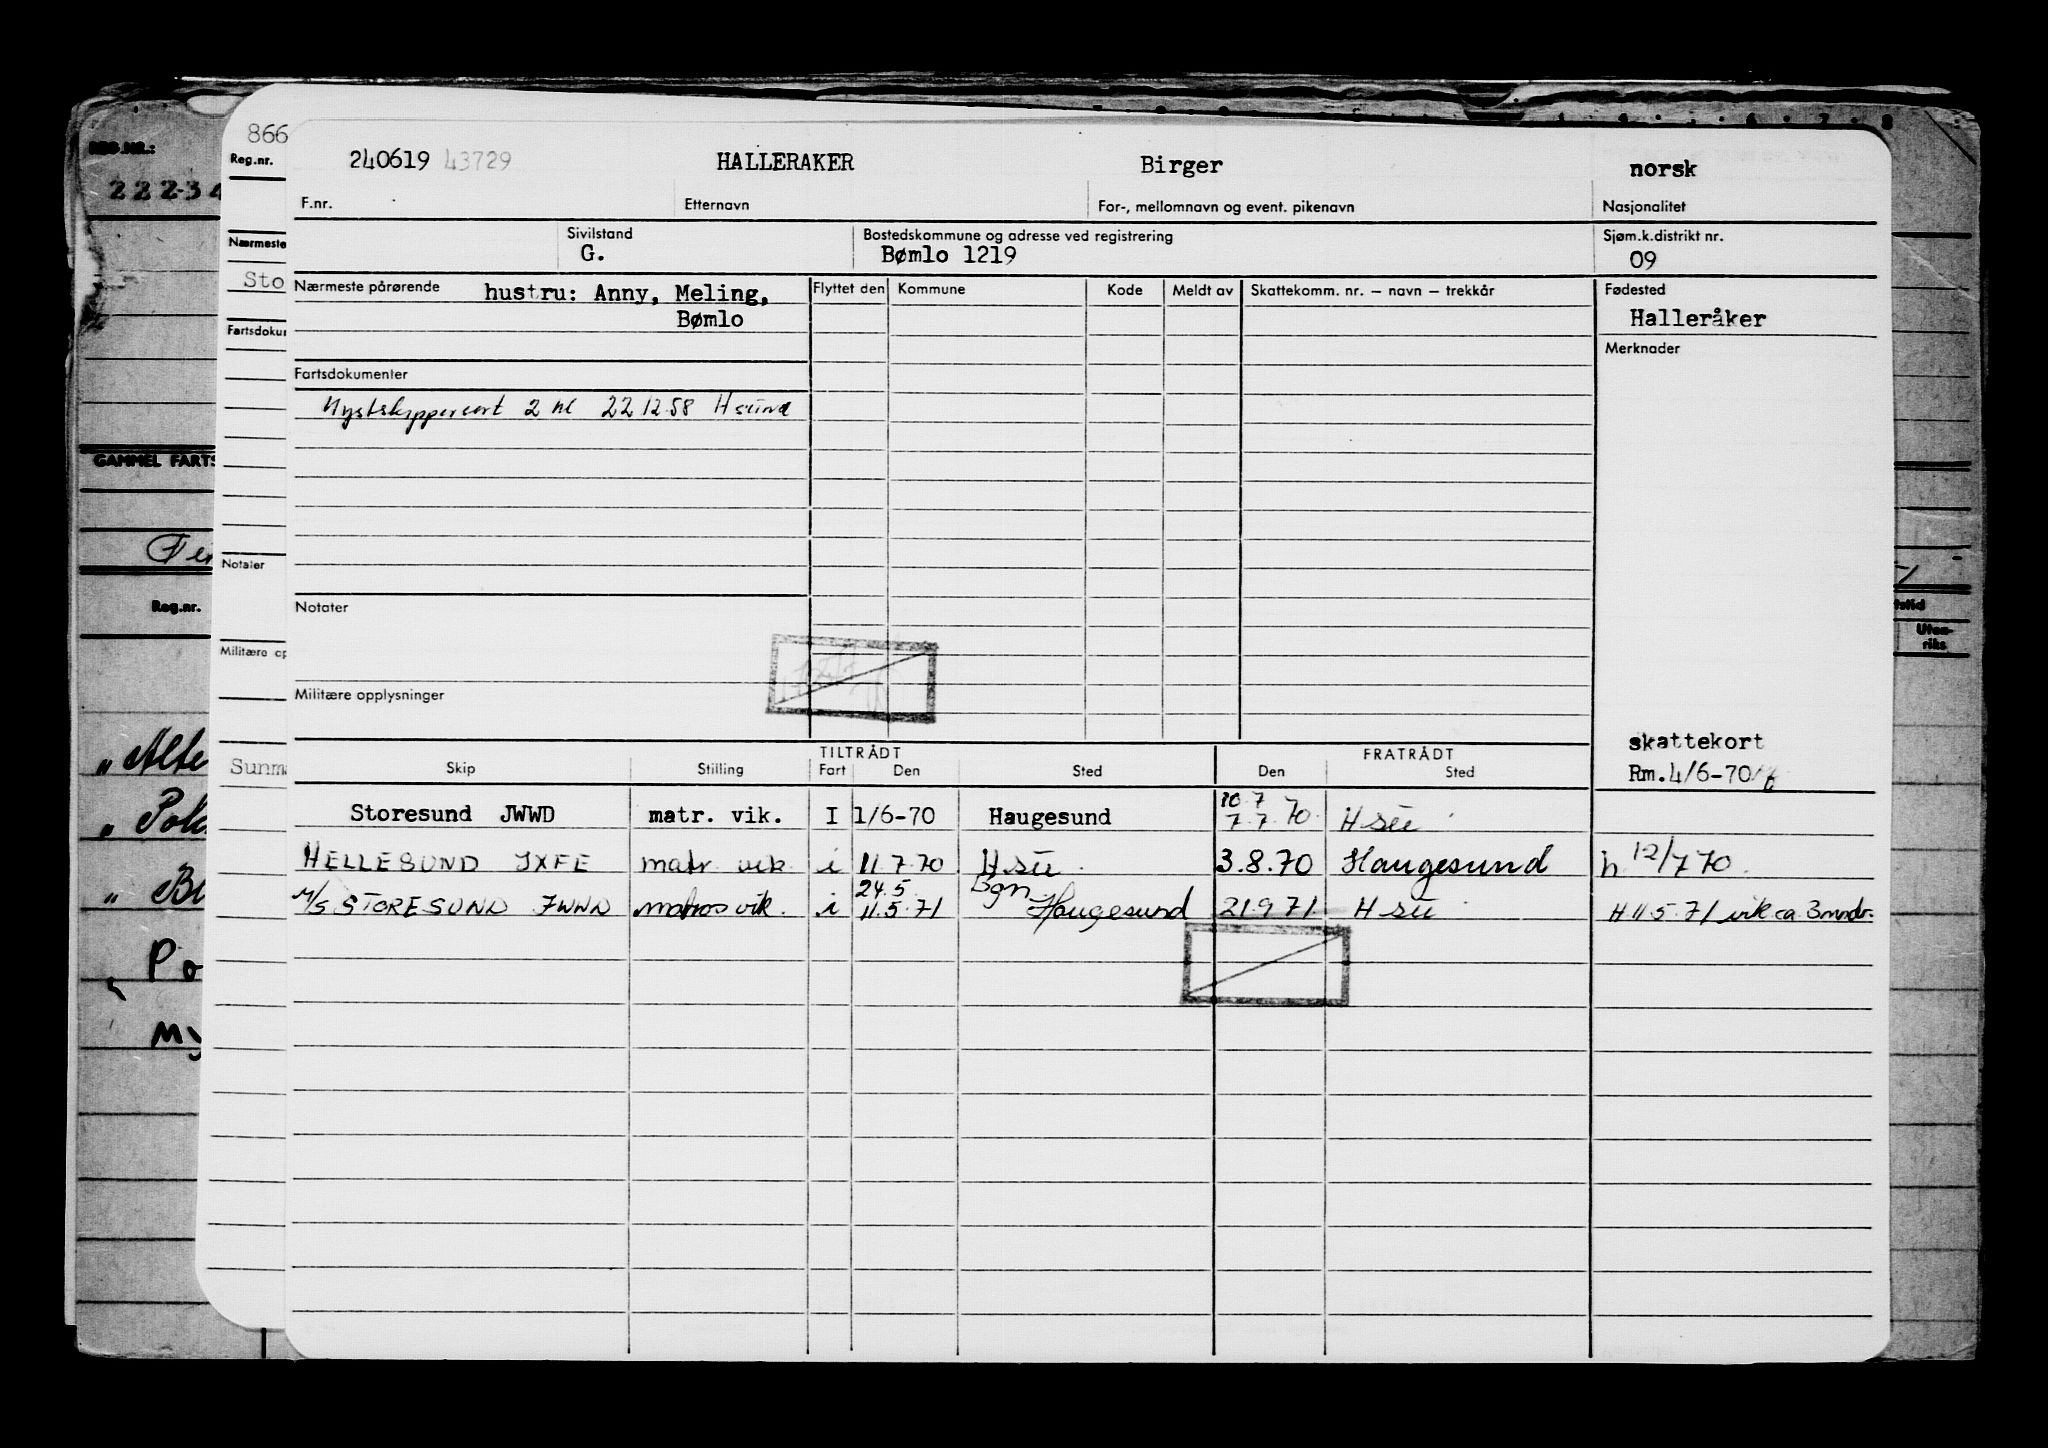 866
REG.NR.:
2 2 2 3 4
Reg.nr.
240619 43729 HALLERAKER Birger norsk
F.nr. Etternavn For-, mellomnavn og event. pikenavn Nasjonalitet
Nærmeste
Sivilstand Bostedskommune og adresse ved registrering Sjøm.k.distrikt nr.
G. Bømlo 1219 09
Sto
Nærmeste pårørende hustru: Anny, Meling, Flyttet den Kommune Kode Meldt av Skattekomm. nr. – navn – trekkår Fødested
Bømlo Halleråker
Fartsdokum
Merknader
Fartsdokumenter
Kystskippersert 2 kl 22 12 58 H sund
GAMMEL FARTS
Notater
Reg.nr.
Notater
Uten-
riks
Militære op
Militære opplysninger
skattekort
Rm.4/6-70
„Alte
Sunm
TILTRÅDT FRATRÅDT
Skip Stilling Fart Den Sted Den Sted
10.7
Storesund JWWD matr. vik. I 1/6-70 Haugesund 7.7.70. H su
„ Pol
HELLESUND JXFE matr vik i 11.7.70 H su 3.8.70 Haugesund h 12/7 70.
„ B
24.5. Bgn
M/S STORESUND JWWD matros vik. i 11.5.71 Haugesund 21.9 71. H su H 11 5.71 vik ca 3 mndr.
„ Po
My